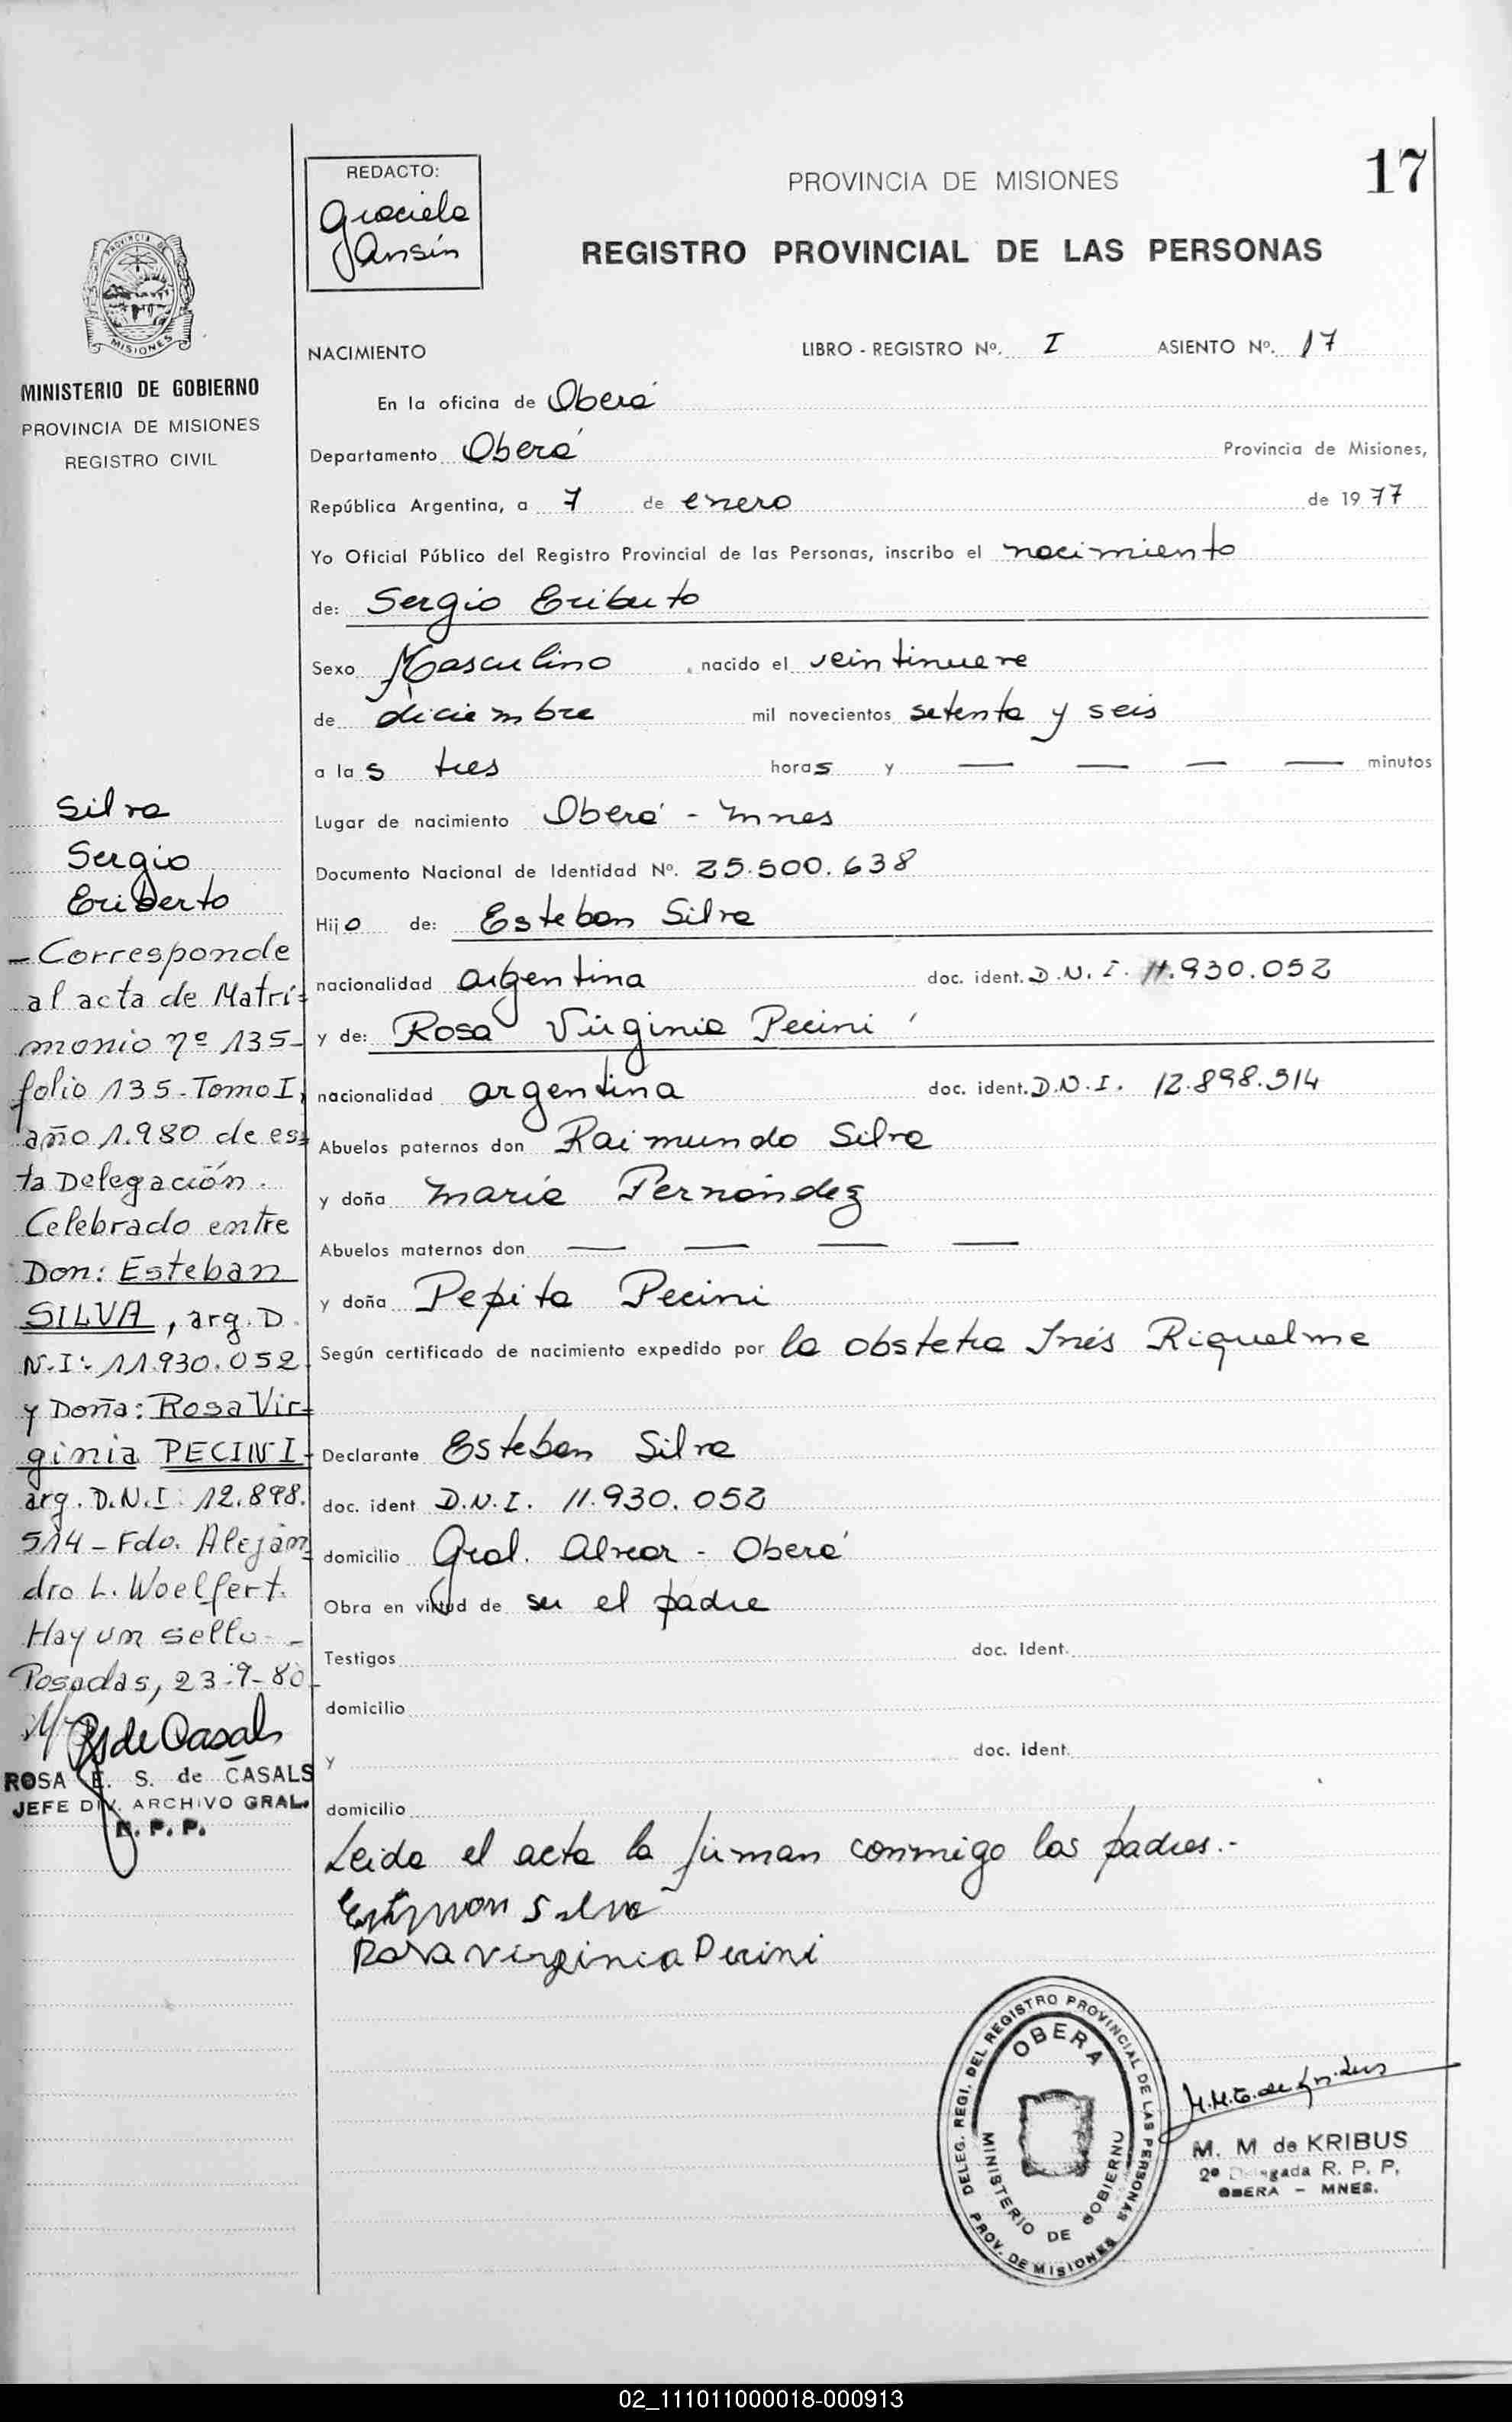 REDACTO:
Graciela
Jansin
PROVINCIA DE MISIONES
17
REGISTRO PROVINCIAL DE LAS PERSONAS
PROVINCIA DE
MISIONES
MINISTERIO DE GOBIERNO
PROVINCIA DE MISIONES
REGISTRO CIVIL
NACIMIENTO LIBRO - REGISTRO Nº. I ASIENTO Nº. 17
En la oficina de Oberá
Departamento Oberá Provincia de Misiones,
República Argentina, a 7 de enero de 1977
Yo Oficial Público del Registro Provincial de las Personas, inscribo el nacimiento
de: Sergio Eriberto
Sexo Masculino, nacido el veintinueve
de diciembre mil novecientos setenta y seis
a las tres horas y — — — — minutos
Lugar de nacimiento Oberá - Mnes
Documento Nacional de Identidad Nº. 25.500.638
Hijo de: Esteban Silva
nacionalidad argentina doc. ident. D.N.I. 11.930.052
y de: Rosa Virginia Pecini
nacionalidad argentina doc. ident. D.N.I. 12.898.514
Abuelos paternos don Raimundo Silva
y doña María Fernández
Abuelos maternos don — — — —
y doña Pepita Pecini
Según certificado de nacimiento expedido por la obstetra Inés Riquelme
Declarante Esteban Silva
doc. ident D.N.I. 11.930.052
domicilio Gral. Alvear - Oberá
Obra en virtud de ser el padre
Testigos doc. ident.
domicilio
y doc. ident.
domicilio
Leida el acta la firman conmigo los padres.-
Esteban Silva
Rosa Virginia Pecini
Silva
Sergio
Eriberto
- Corresponde
al acta de Matri=
monio nº 135-
folio 135-Tomo I,
año 1.980 de es=
ta Delegación.
Celebrado entre
Don: Esteban
SILVA, arg. D.
N.I: 11.930.052
y Doña: Rosa Vir=
ginia PECINI-
arg. D.N.I: 12.898.
514 - Fdo. Aleján=
dro L. Woelfert.
Hay un sello -
Posadas, 23-9-80
R S de Casals
ROSA E. S. de CASALS
JEFE DIV. ARCHIVO GRAL.
R. P. P.
DELEG. REGI. DEL REGISTRO PROVINCIAL DE LAS PERSONAS
PROV. DE MISIONES
OBERA
MINISTERIO DE GOBIERNO
M. M de KRIBUS
2º Delegada R. P. P.
OBERA - MNES.
02_111011000018-000913